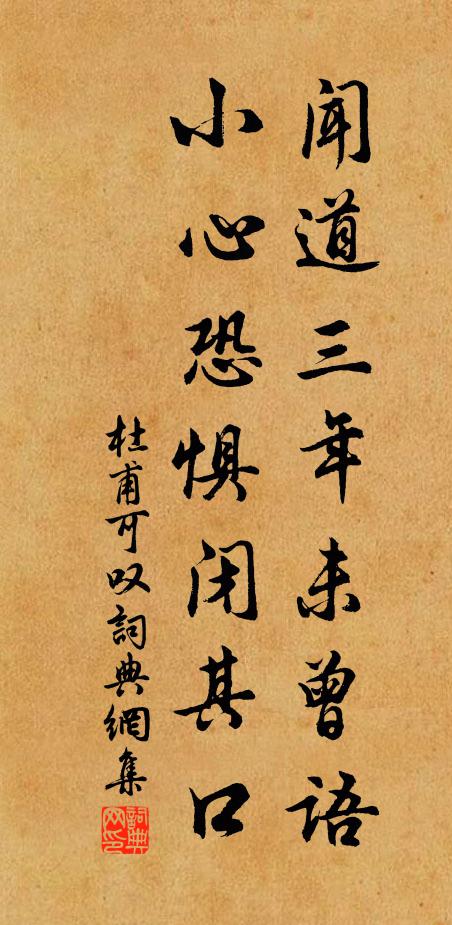 聞道三年未曾語
小心恐惧闭其口
杜甫可叹詞典網集
詞典网印